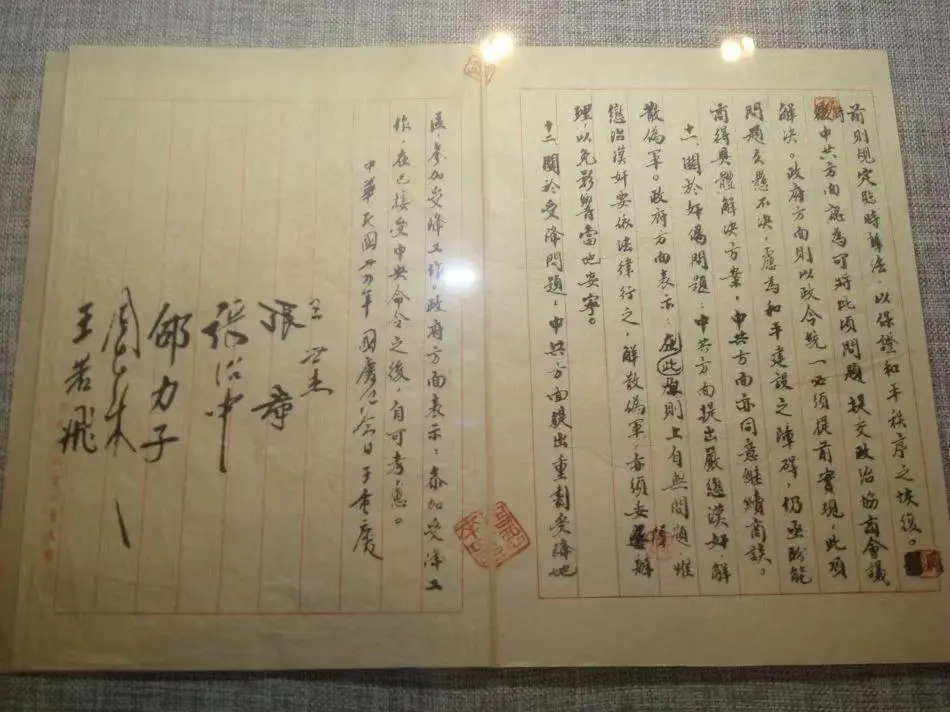 前則規定臨時辦法，以保證和平秩序之恢復。
中共方面認為可將此項問題提交政治協商會議
解决。政府方面則以政令統一必須提前實現，此項
問題久懸不决，慮為和平建設之障碍，仍亟盼能
商得具體解决方案，中共方面亦同意継續商談。
十一、關於奸偽問題：中共方面提出嚴懲漢奸，解
散偽軍。政府方面表示：此在原則上自無問題，惟
懲治漢奸要依法律行之，解散偽軍，亦須妥慎辦
理，以免影響當地安寧。
十二、關於受降問題，中共方面提出重劃受降地
區，參加受降工作，政府方面表示：參加受降工
作，在已接受中央命令之後，自可考慮。
中華民國卅四年國慶紀念日于重慶
王世杰
張羣
張治中
邵力子
周恩来
王若飛